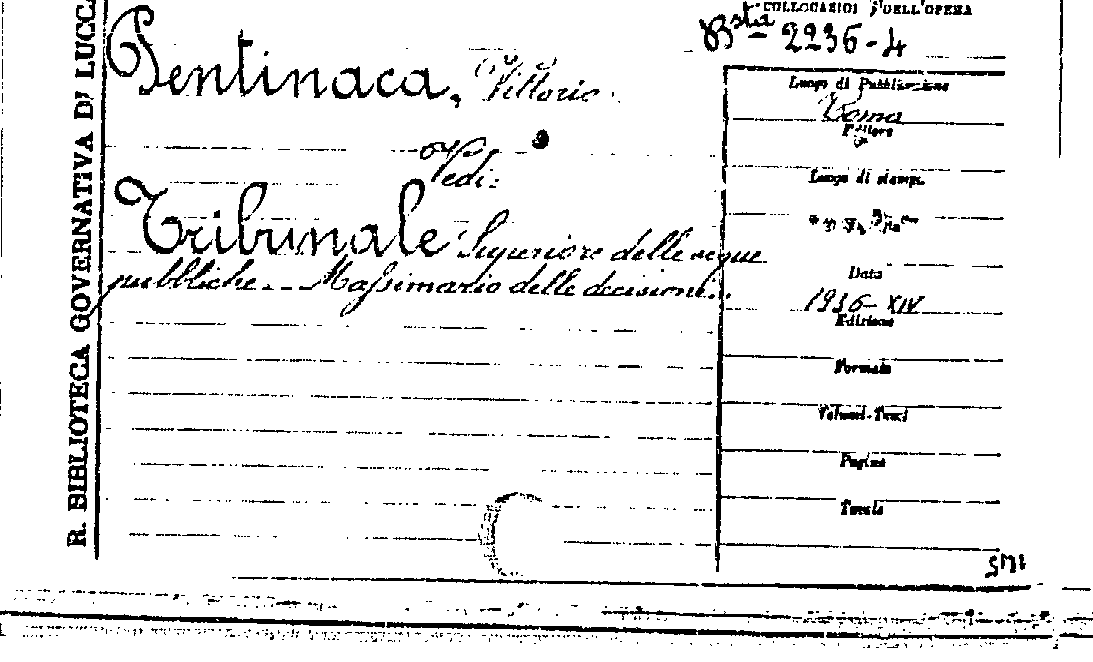 R. BIBLIOTECA GOVERNATIVA DI LUCCA
COLLOCAZIONE DELL'OPERA
Bsta 2236-4
Pentinaca, Vittorio
Vedi:
Tribunale Superiore delle acque
pubbliche. - Massimario delle decisioni.
Luogo di Pubblicazione
Roma
Editore
Luogo di stampa
Data
1936-XIV
Edizione
Formato
Volumi-Tomi
Pagine
Tavole